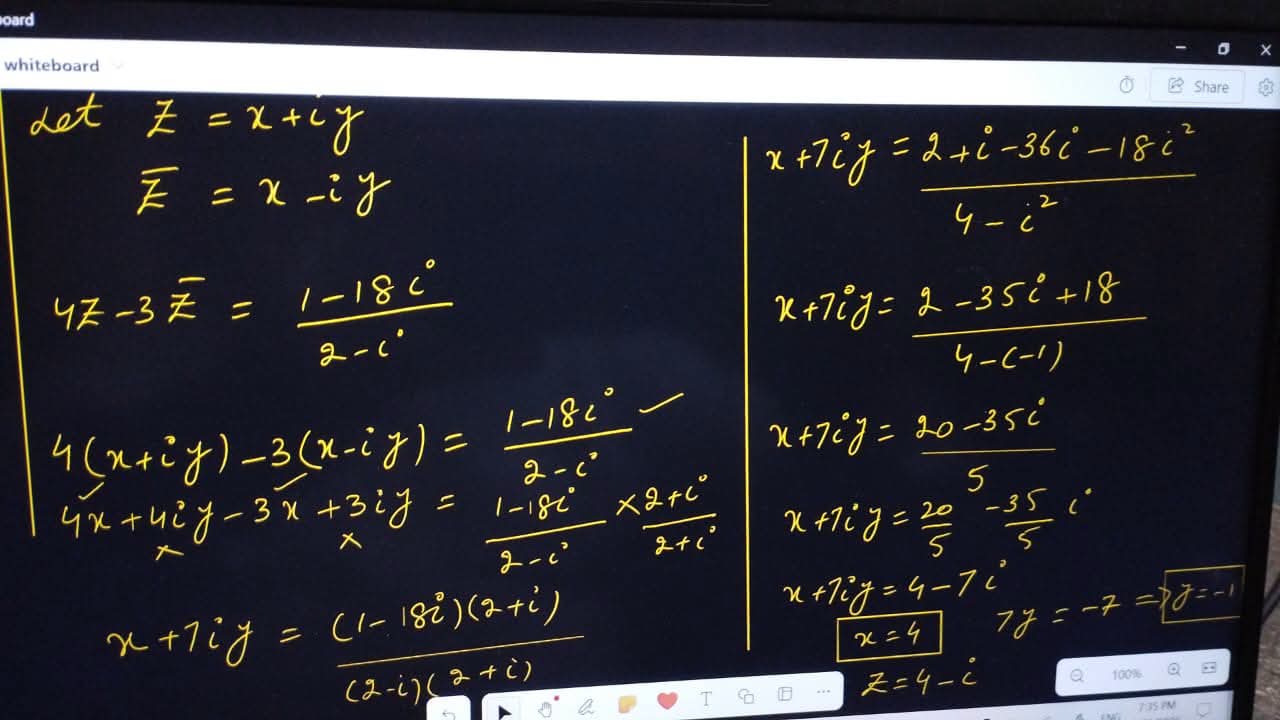 board
whiteboard
Share
Let Z = x+iy
Z̅ = x-iy
4Z-3Z̅ = (1-18i)/(2-i)
4(x+iy)-3(x-iy) = (1-18i)/(2-i) ✓
4x+4iy-3x+3iy = (1-18i)/(2-i) × (2+i)/(2+i)
x+7iy = ((1-18i)(2+i))/((2-i)(2+i))
x+7iy = (2+i-36i-18i²)/(4-i²)
x+7iy = (2-35i+18)/(4-(-1))
x+7iy = (20-35i)/5
x+7iy = 20/5 -35/5 i
x+7iy = 4-7i
x=4
7y = -7 => y=-1
Z=4-i
100%
7:35 PM
ENG